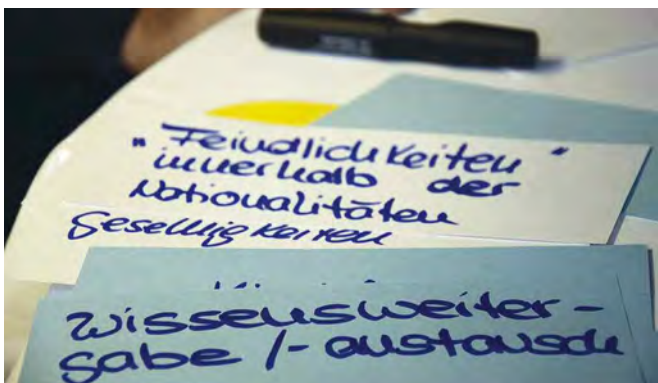 "Feindlichkeiten"
innerhalb der
Nationalitäten
Geselligkeiten
Wissensweiter-
gabe /- austausch